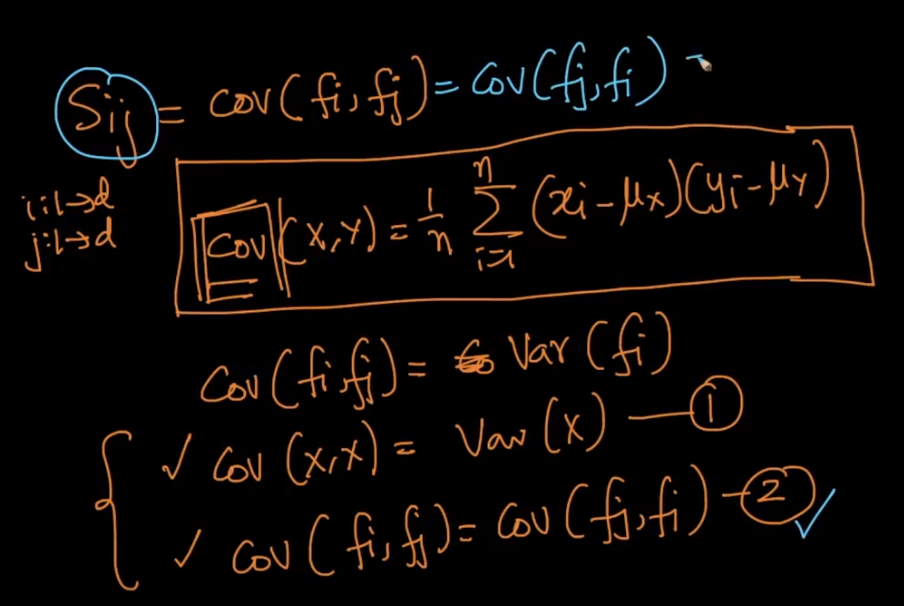 Sij = cov(fi, fj) = cov(fj, fi) =
i: 1→d
j: 1→d
cov(x, y) = 1/n Σ_{i=1}^{n} (xi - μx)(yi - μy)
cov(fi, fj) = Var(fi)
✓ cov(x, x) = Var(x) — ①
✓ cov(fi, fj) = cov(fj, fi) — ② ✓